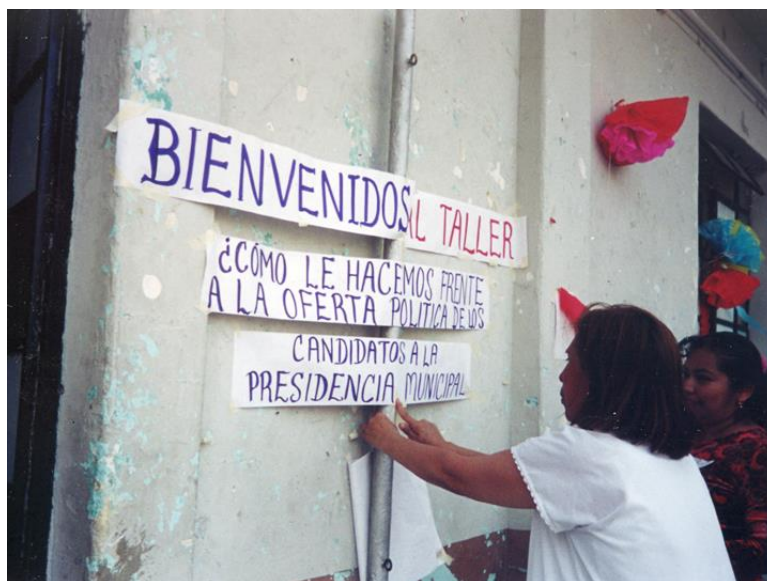 BIENVENIDOS AL TALLER
¿CÓMO LE HACEMOS FRENTE
A LA OFERTA POLITICA DE LOS
CANDIDATOS A LA
PRESIDENCIA MUNICIPAL